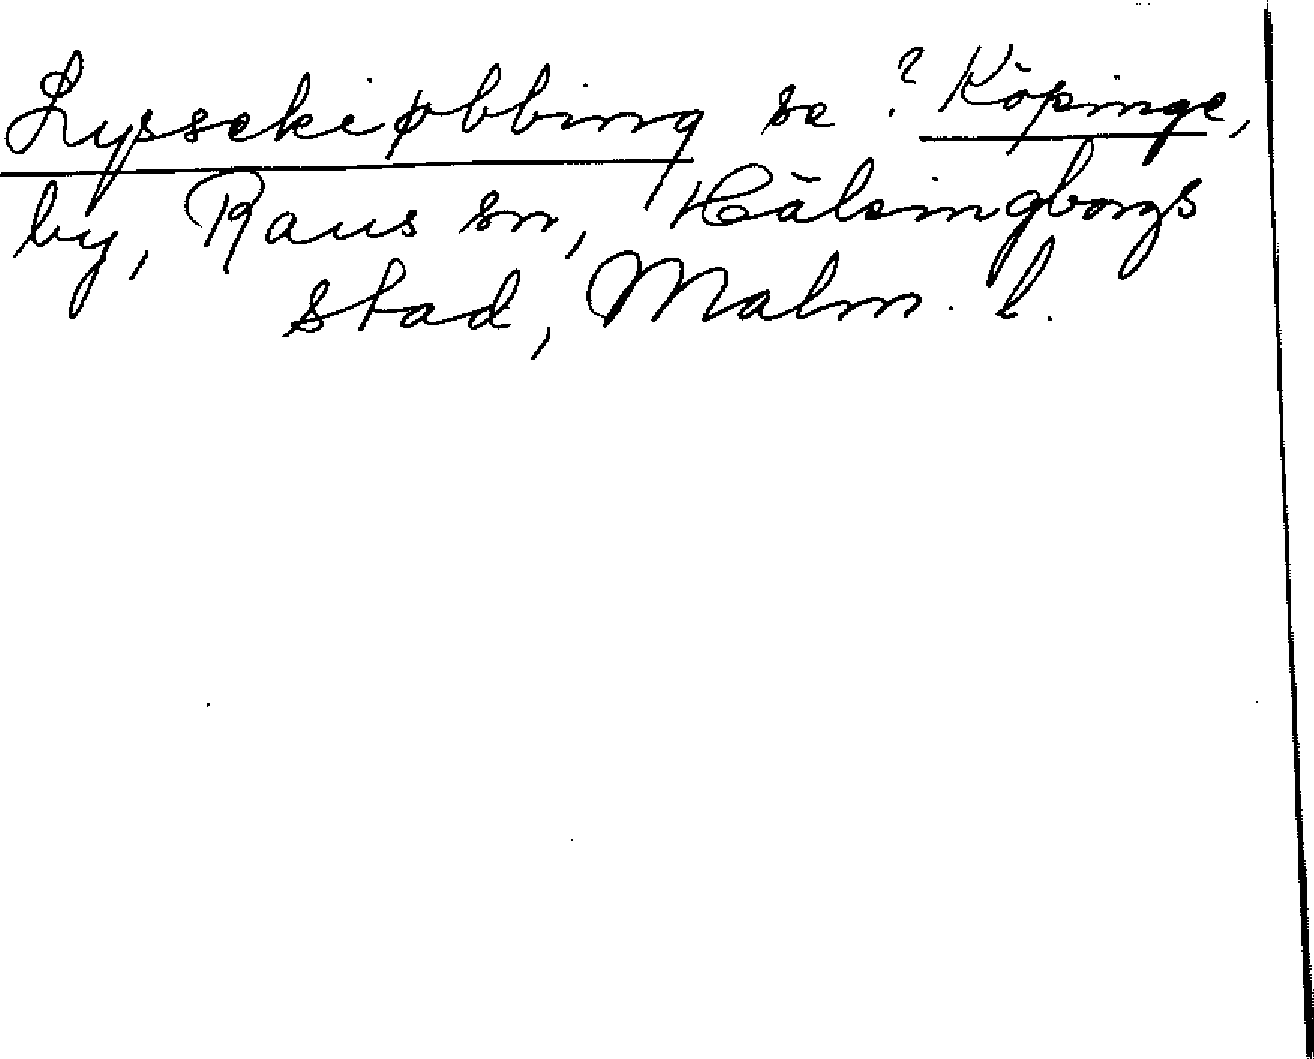 Lyssekiøbbing se ? Köpinge,
by, Raus sn, Hälsingborgs
stad, Malm. l.